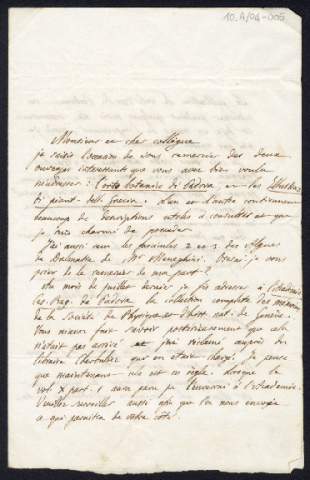 10. A/04-005
Monsieur et cher collègue
je saisis l'occasion de vous remercier des deux
ouvrages intéressants que vous avez bien voulu
m'adresser: l'orto botanico di Padova et les
di piante della Grecia. L'un et l'autre contiennent
beaucoup de descriptions utiles à consulter et que
je suis charmé de posséder.
J'ai aussi reçu les fascicules 2 et 3 des Algues
de Dalmatie de Mr Meneghini. Oserai-je vous
prier de le remercier de ma part?
Au mois de juillet dernier je fis adresser à l'Académie
des de Padova la collection complète des mémoires
de la Société de Physique et d'hist. nat. de Genève.
Vous m'avez fait savoir postérieurement que cela
n'était pas arrivé et j'ai réclamé auprès du
libraire qui en était chargé. Je pense
que maintenant cela est en règle. Lorsque le
vol. X part. 1 aura paru je l'enverrai à l'Académie.
Veuillez surveiller aussi afin que l'on nous envoie
ce qui paraîtra de votre côté.